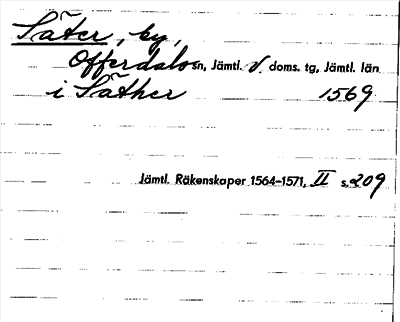 Säter, by,
Offerdals sn, Jämtl. v. doms. tg, Jämtl. län
i Säther 1569
Jämtl. Räkenskaper 1564-1571, II s. 209